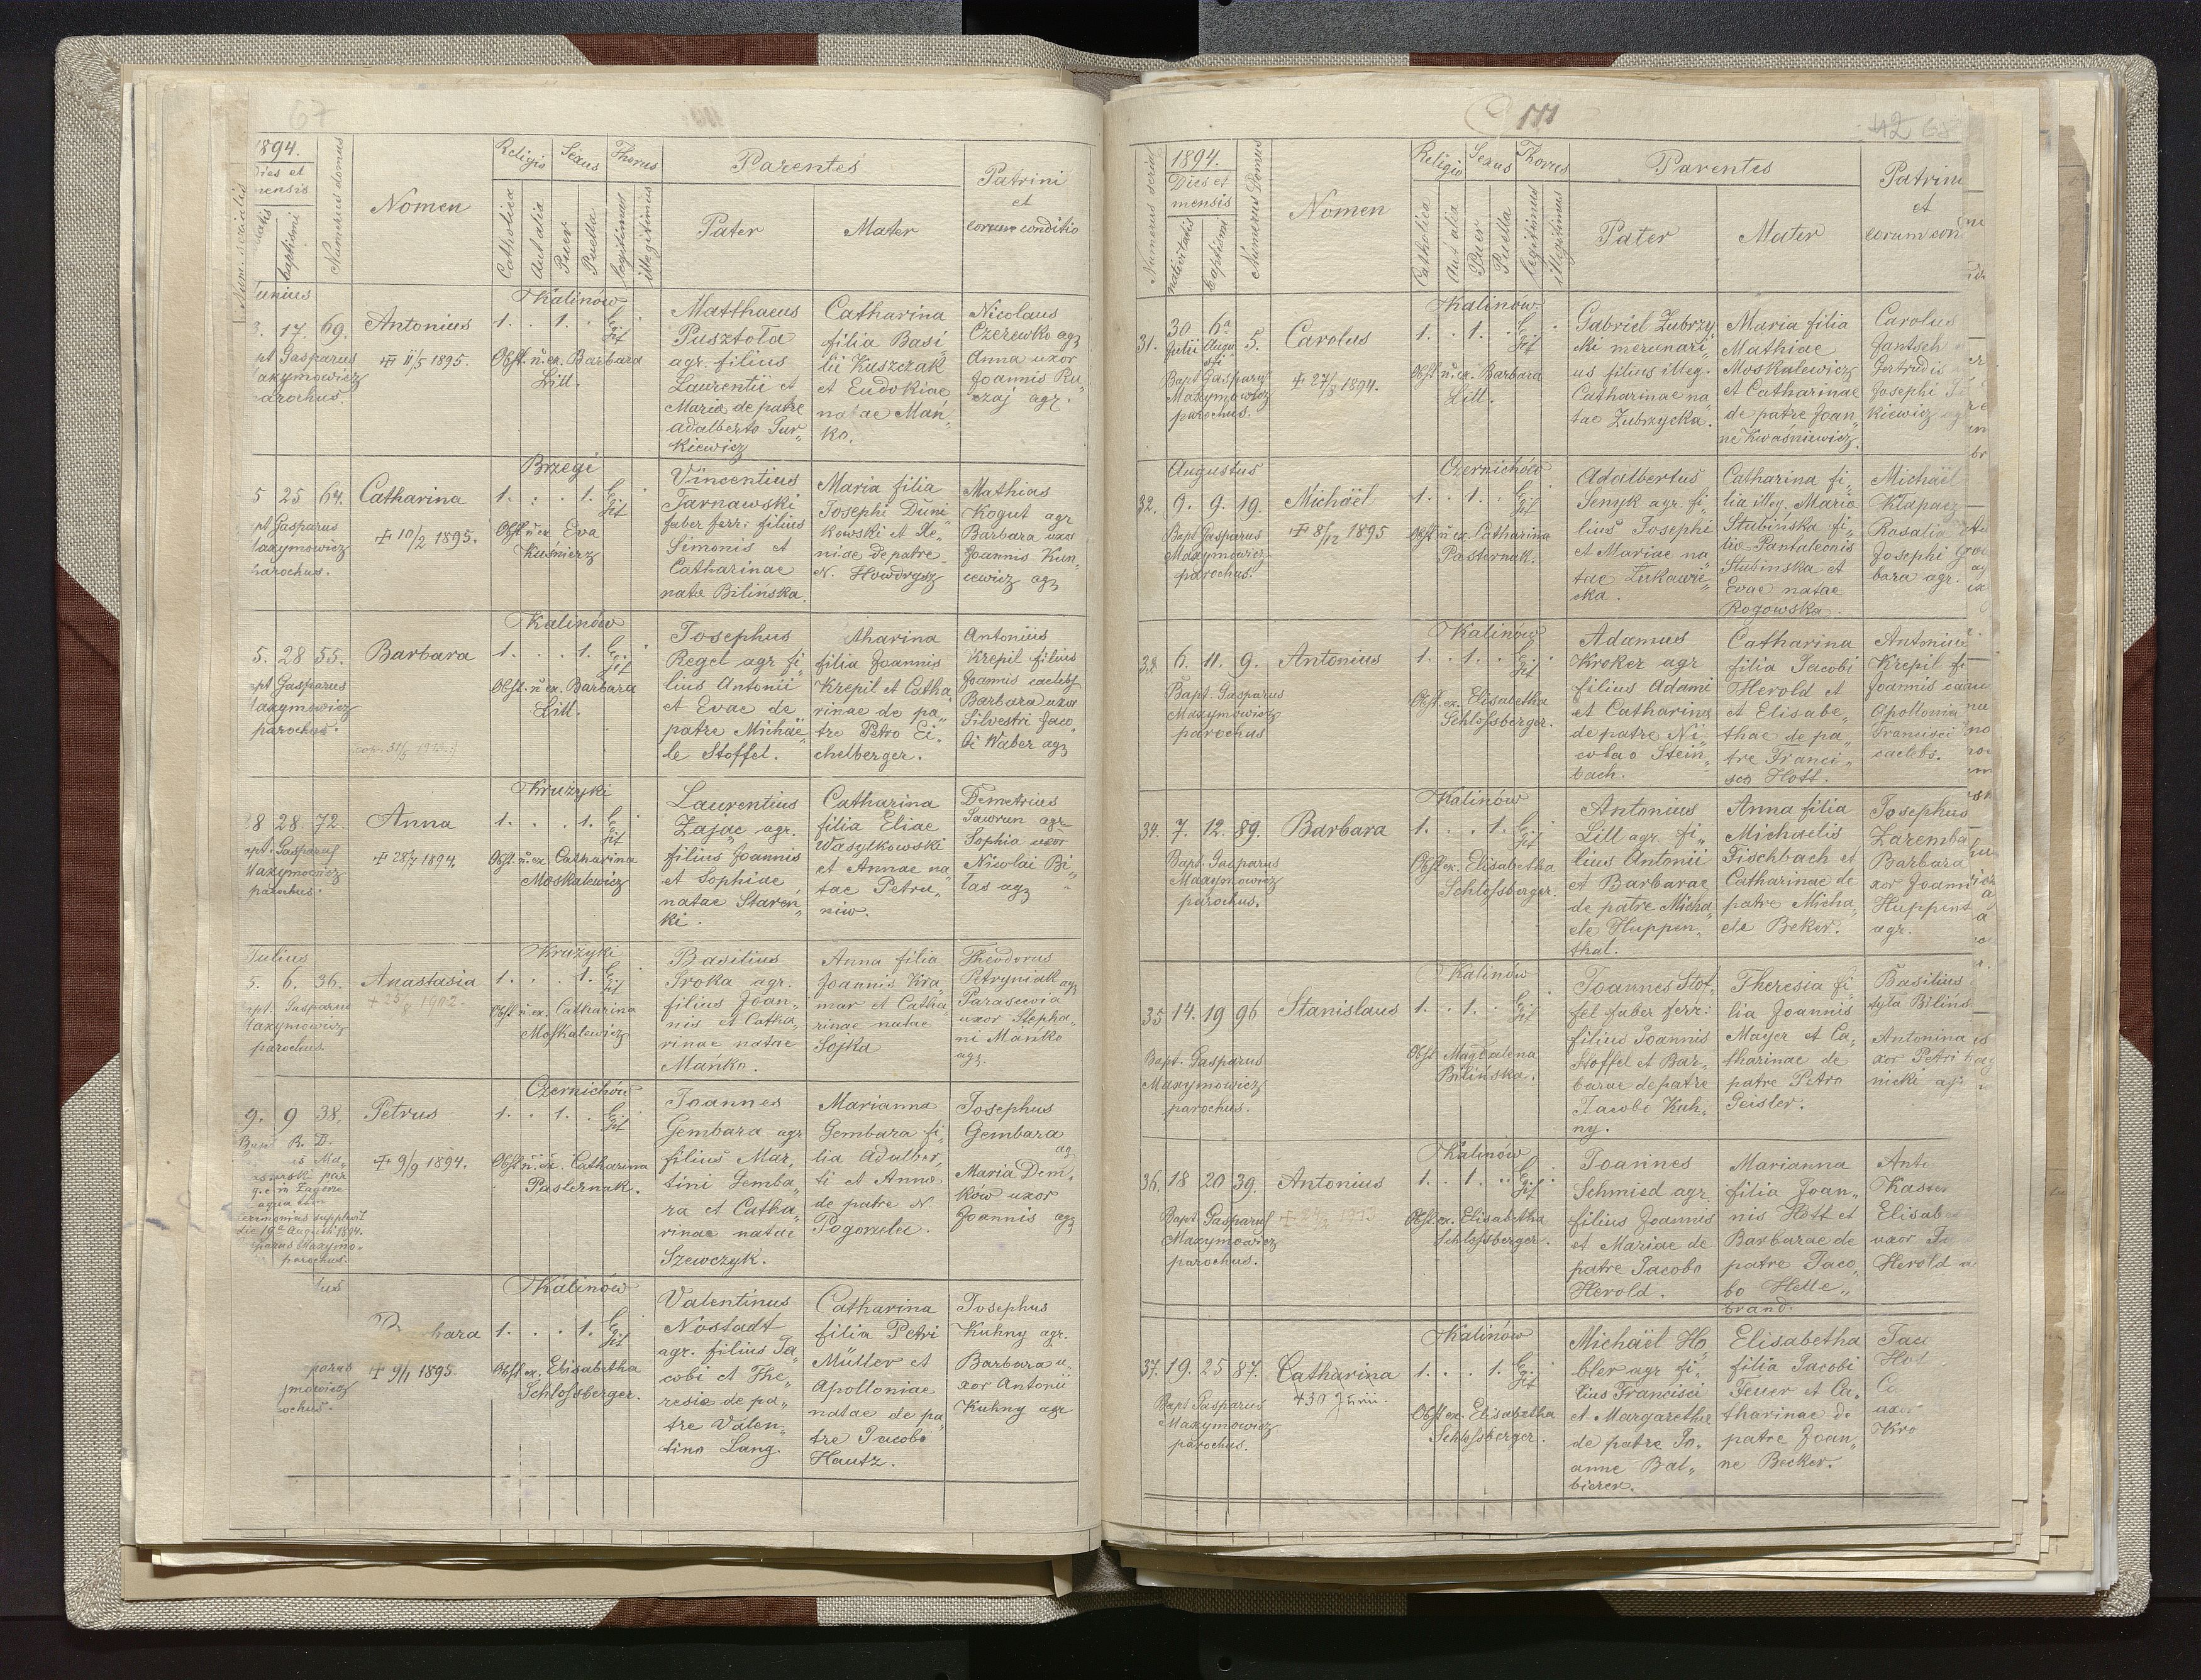 67
1894.
Dies et
mensis
baptismi
Numerus domus
Nomen
Religio
Sexus
Thorus
Catholica
Aut alia
Puer
Puella
legitimus
illegitimus
Parentes
Pater
Mater
Patrini
et
eorum conditio
Junius
3. 17. 69. Antonius
✠ 11/5 1895.
pt Gasparus
axymowicz
parochus.
Kalinów
1. . 1. . Legit .
Obst. n. ex. Barbara
Lill.
Matthaeus
Pusztoła
agr. filius
Laurentii et
Maria de patre
Adalberto Jur„
kiewicz
Catharina
filia Basi„
lii Kuszczak
et Eudokiae
natae Mań„
ko.
Nicolaus
Czerewko agr
Anna uxor
Joannis Ru„
czaj agr.
5 25 64. Catharina
✠ 10/2 1895.
pt Gasparus
axymowicz
parochus.
Brzegi
1. . . 1. Legit .
Obst n ex Eva
Kuśnierz
Vincentius
Tarnawski
faber ferr: filius
Simonis et
Catharinae
natae Bilińska.
Maria filia
Josephi Duni„
kowski et Xe„
niae de patre
N. Howdrysz
Mathias
Kogut agr
Barbara uxor
Joannis Kun„
cewicz agr
5. 28 55. Barbara
pt Gasparus
axymowicz
parochus.
Kalinów
1. . . 1. Legit .
Obst. n ex. Barbara
Lill.
Josephus
Regel agr fi„
lius Antonii
et Evae de
patre Michae„
le Stoffel.
atharina
filia Joannis
Krepil et Catha„
rinae de pa„
tre Petro Ei„
chelberger.
Antonius
Krepil filius
Joannis caelebs
Barbara uxor
Silvestri Jaco„
bi Waber agr
28 28. 72. Anna
✠ 28/7 1894.
pt. Gasparus
Maxymowicz
parochus.
Krużyki
1. . . 1. Legit
Obst. n. ex Catharina
Moskalewicz
Laurentius
Zając agr.
filius Joannis
et Sophiae
natae Staren„
ki.
Catharina
filia Eliae
Wasylkowski
et Annae na„
tae Petru„
niw.
Demetrius
Sawrun agr
Sophia uxor
Nicolai Bi„
las agr
Julius
5. 6. 36. Anastasia
pt. Gasparus
axymowicz
parochus
Krużyki
1. . . 1. Legit
Obst. n. ex. Catharina
Moskalewicz
Basilius
Sroka agr.
filius Joan„
nis et Catha„
rinae natae
Mańko.
Anna filia
Joannis Kra„
mar et Catha„
rinae natae
Sojka
Theodorus
Petryniak agr
Parascevia
uxor Stepha„
ni Mańko
agr.
9. 9 38. Petrus
✠ 9/9 1894.
Bapt R. D.
die 19a Augusti 1894.
parochus.
Czernichów
1. . 1. . Legit
Obst n. ex. Catharina
Pasternak.
Joannes
Gembara agr
filius Mar„
tini Gemba„
ra et Catha„
rinae natae
Szewczyk.
Marianna
Gembara fi„
lia Adalber„
ti et Anna
de patre N.
Pogorzelec.
Josephus
Gembara
agr
Maria Dem„
ków uxor
Joannis agr
bara
✠ 9/1 1895.
Kalinów
1. . . 1. Legit
Obst ex. Elisabetha
Schlossberger.
Valentinus
Nostadt
agr. filius Ja„
cobi et The„
resia de pa„
tre Valen„
tino Lang.
Catharina
filia Petri
Müller et
Apolloniae
natae de pa„
tre Jacobo
Hautz.
Josephus
Kuhny agr.
Barbara u„
xor Antonii
Kuhny agr
42 68
Numerus serialis
1894.
Dies et
mensis
nativitatis
baptismi
Numerus domus
Nomen
Religio
Sexus
Thorus
Catholica
Aut alia
Puer
Puella
legitimus
illegitimus
Parentes
Pater
Mater
Patrini
et
eorum con
31. 30 Julii 6a Augusti 5. Carolus
✠ 27/8 1894.
Bapt Gasparus
Maxymowicz
parochus.
Kalinów
1. . 1. . Legit .
Obst n. ex. Barbara
Lill.
Gabriel Zubrzy„
cki mercenari„
us filius illeg.
Catharinae na„
tae Zubrzycka.
Maria filia
Mathiae
Moskalewicz
et Catharinae
de patre Joan„
ne Kwaśniewicz.
Carolus
Jantsch
Gertrudis
Josephi
kiewicz ag
Augustus
32. 9. 9. 19. Michaël
✠ 8/12 1895
Bapt Gasparus
Maxymowicz
parochus.
Czernichów
1. . 1. . Legit
Obst n ex. Catharina
Pasternak.
Adalbertus
Senyk agr. fi„
lius Josephi
et Mariae na„
tae Łukawie„
cka.
Catharina fi„
lia illeg. Maria
Stubińska fi„
lia Pantaleonis
Stubinska et
Evae natae
Rogowska.
Michaël
Kłapacz
Rosalia
Josephi
bara agr.
33. 6. 11. 9. Antonius
Bapt. Gasparus
Maxymowicz
parochus
Kalinów
1. . 1. . Legit .
Obst. ex. Elisabetha
Schlossberger.
Adamus
Kroker agr
filius Adami
et Catharina
de patre Ni„
colao Stein„
bach.
Catharina
filia Jacobi
Herold et
et Elisabe„
thae de pa„
tre Franci„
sco Hott.
Antonius
Krepil fi
Joannis cae
Apollonia
Francisci
caelebs.
34. 7. 12. 89. Barbara
Bapt. Gasparus
Maxymowicz
parochus.
Kalinów
1. . . 1. Legit
Obst ex. Elisabetha
Schlossberger.
Antonius
Lill agr. fi„
lius Antonii
et Barbarae
de patre Micha„
ele Huppen„
thal.
Anna filia
Michaelis
Fischbach et
Catharinae de
patre Micha„
ele Beker.
Josephus
Zaremba
Barbara
xor Joanni
Huppent
agr.
35 14. 19 96 Stanislaus
Bapt. Gasparus
Maxymowicz
parochus.
Kalinów
1. . 1. . Legit
Obst Magdalena
Bilińska.
Joannes Stof„
fel faber ferr:
filius Joannis
Stoffel et Bar„
barae de patre
Jacobi Kuh„
ny.
Theresia fi„
lia Joannis
Mayer et Ca„
tharinae de
patre Petro
Geisler.
Basilius
Bilińs
Antonina
xor Petri
nicki agr
36. 18 20 39. Antonius
Bapt Gasparus
Maxymowicz
parochus.
Kalinów
1. . 1. . Legit
Obst ex. Elisabetha
Schlossberger.
Joannes
Schmied agr.
filius Joannis
et Mariae de
patre Jacobo
Herold.
Marianna
filia Joan„
nis Hott et
Barbarae de
patre Jaco„
bo Helle„
brand.
Anto
Kasser
Elisab
uxor
Herold
37. 19. 25 87. Catharina
✠ 30 Junii.
Bapt Gasparus
Maxymowicz
parochus.
Kalinów
1. . . 1. Legit
Obst ex. Elisabetha
Schlossberger.
Michaël Ho„
bler agr fi„
lius Francisci
et Margaretha
de patre Jo„
anne Bal„
bierer.
Elisabetha
filia Jacobi
Feuer et Ca„
tharinae de
patre Joan„
ne Becker.
Jaco
Hot
Ca
uxor
Kro